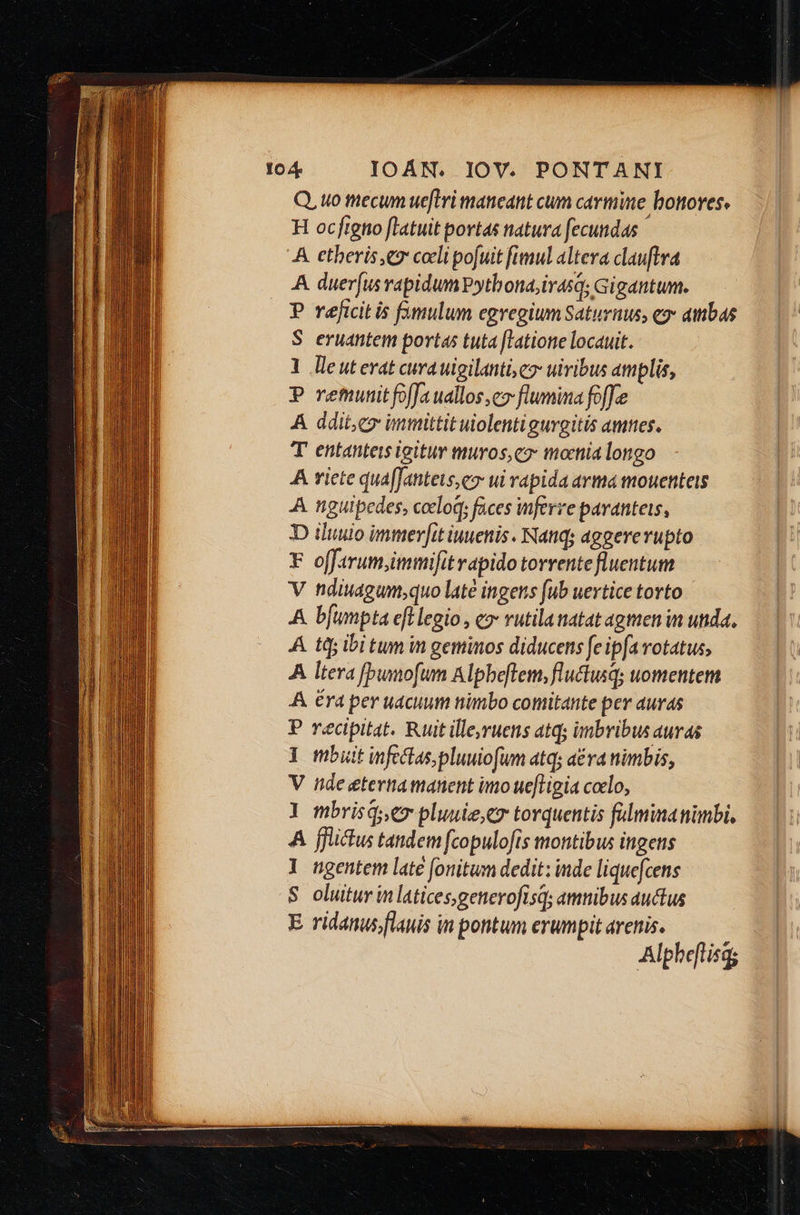 104 IOAN. IOV. PONTANI
Q uo mecum ueſtri maneant cum carmine honores.
H oc ſigno ſtatuit portas natura ſecundas
A etheris, & cœli poſuit ſimul altera clauſtra
A duerſus rapidum Pythona, irasq; Gigantum.
P ræficit is famulum egregium Saturnus, & ambas
S eruantem portas tuta ſtatione locauit.
I lle ut erat cura uigilanti, & uiribus amplis,
P ræmunit foſſa uallos, & flumina foſſæ
A ddit, & immittit uiolenti gurgitis amnes.
T entanteis igitur muros, & mœnia longo
A riete quaſſanteis, & ui rapida arma mouenteis
A nguipedes, cœloq; faces inferre paranteis,
D iluuio immerſit iuuenis. Nanq; aggere rupto
F oſſarum, immiſit rapido torrente fluentum
V ndiuagum, quo latè ingens ſub uertice torto
A bſumpta eſt legio, & rutila natat agmen in unda.
A tq; ibi tum in geminos diducens ſe ipſa rotatus,
A ltera ſpumoſum Alpheſtem, fluctusq; uomentem
A ëra per uacuum nimbo comitante per auras
P ræcipitat. Ruit ille, ruens atq; imbribus auras
I mbuit infectas, pluuioſum atq; aëra nimbis,
V nde æterna manent imo ueſtigia cœlo,
I mbrisq;, & pluuiæ, & torquentis fulmina nimbi.
A fflictus tandem ſcopuloſis montibus ingens
I ngentem latè ſonitum dedit: inde liqueſcens
S oluitur in latices, generoſisq; amnibus auctus
E ridanus, flauis in pontum erumpit arenis.
Alpheſtisq;